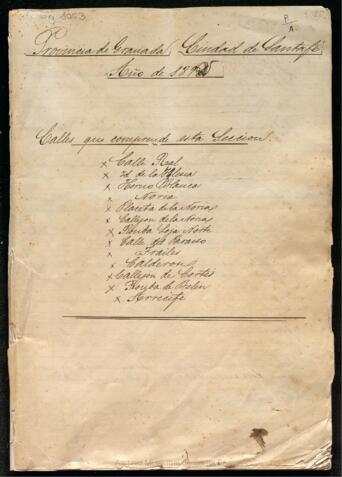 P
A
Provincia de Granada Ciudad de Santafé
Año de 189
Calles que comprende esta Seccion.
x Calle Real
x id de la Yglesia
x Horno Blanca
x Noria
x Placeta de la Noria
x Callejon de la Noria
x Ronda Loja Norte
x Calle del Paraiso
x Frailes
x Calderon
x Callejon de Cortés
x Ronda de Belen
x Arrecife